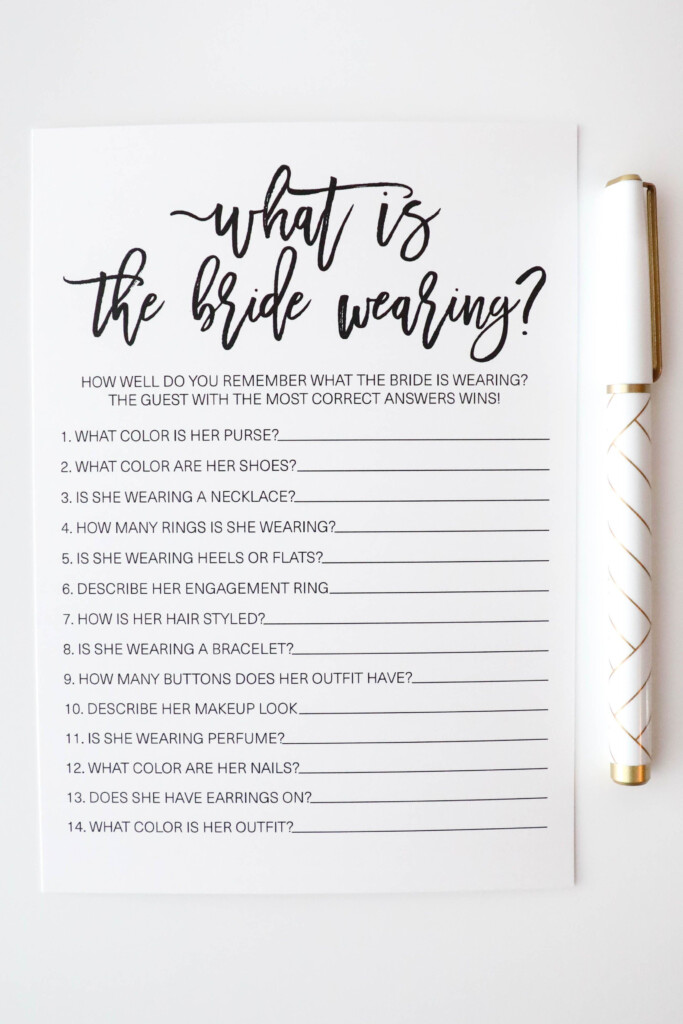 what is
the bride wearing?
HOW WELL DO YOU REMEMBER WHAT THE BRIDE IS WEARING?
THE GUEST WITH THE MOST CORRECT ANSWERS WINS!
1. WHAT COLOR IS HER PURSE?
2. WHAT COLOR ARE HER SHOES?
3. IS SHE WEARING A NECKLACE?
4. HOW MANY RINGS IS SHE WEARING?
5. IS SHE WEARING HEELS OR FLATS?
6. DESCRIBE HER ENGAGEMENT RING
7. HOW IS HER HAIR STYLED?
8. IS SHE WEARING A BRACELET?
9. HOW MANY BUTTONS DOES HER OUTFIT HAVE?
10. DESCRIBE HER MAKEUP LOOK
11. IS SHE WEARING PERFUME?
12. WHAT COLOR ARE HER NAILS?
13. DOES SHE HAVE EARRINGS ON?
14. WHAT COLOR IS HER OUTFIT?